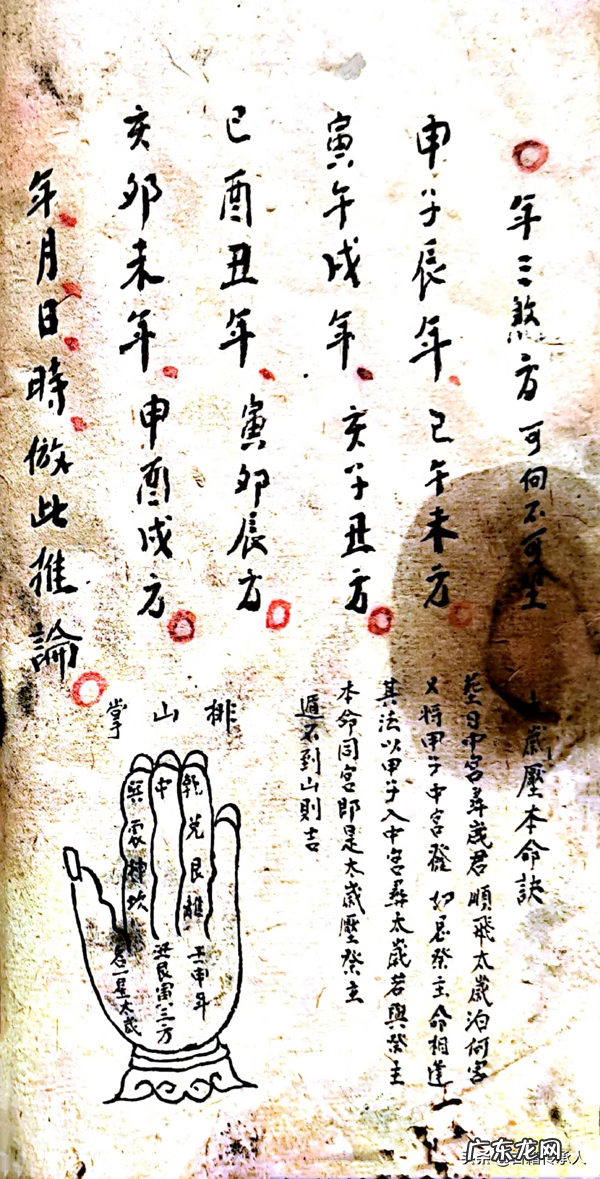 年三煞方可向不可坐
申子辰年 巳午未方
寅午戌年 亥子丑方
巳酉丑年 寅卯辰方
亥卯未年 申酉戌方
年月日時倣此推論
歲壓本命訣
葬日中宮尋歲君 順飛太歲泊何宮
又將甲子中宮發 如忌祭主命相逢
其法以甲子入中宮尋太歲若與祭主
本命同宮即是太歲壓祭主
遁不到山則吉
排山掌
乾兌艮離
中
巽震坤坎
壬申年
艮寅三方
一星太歲
广东龙网